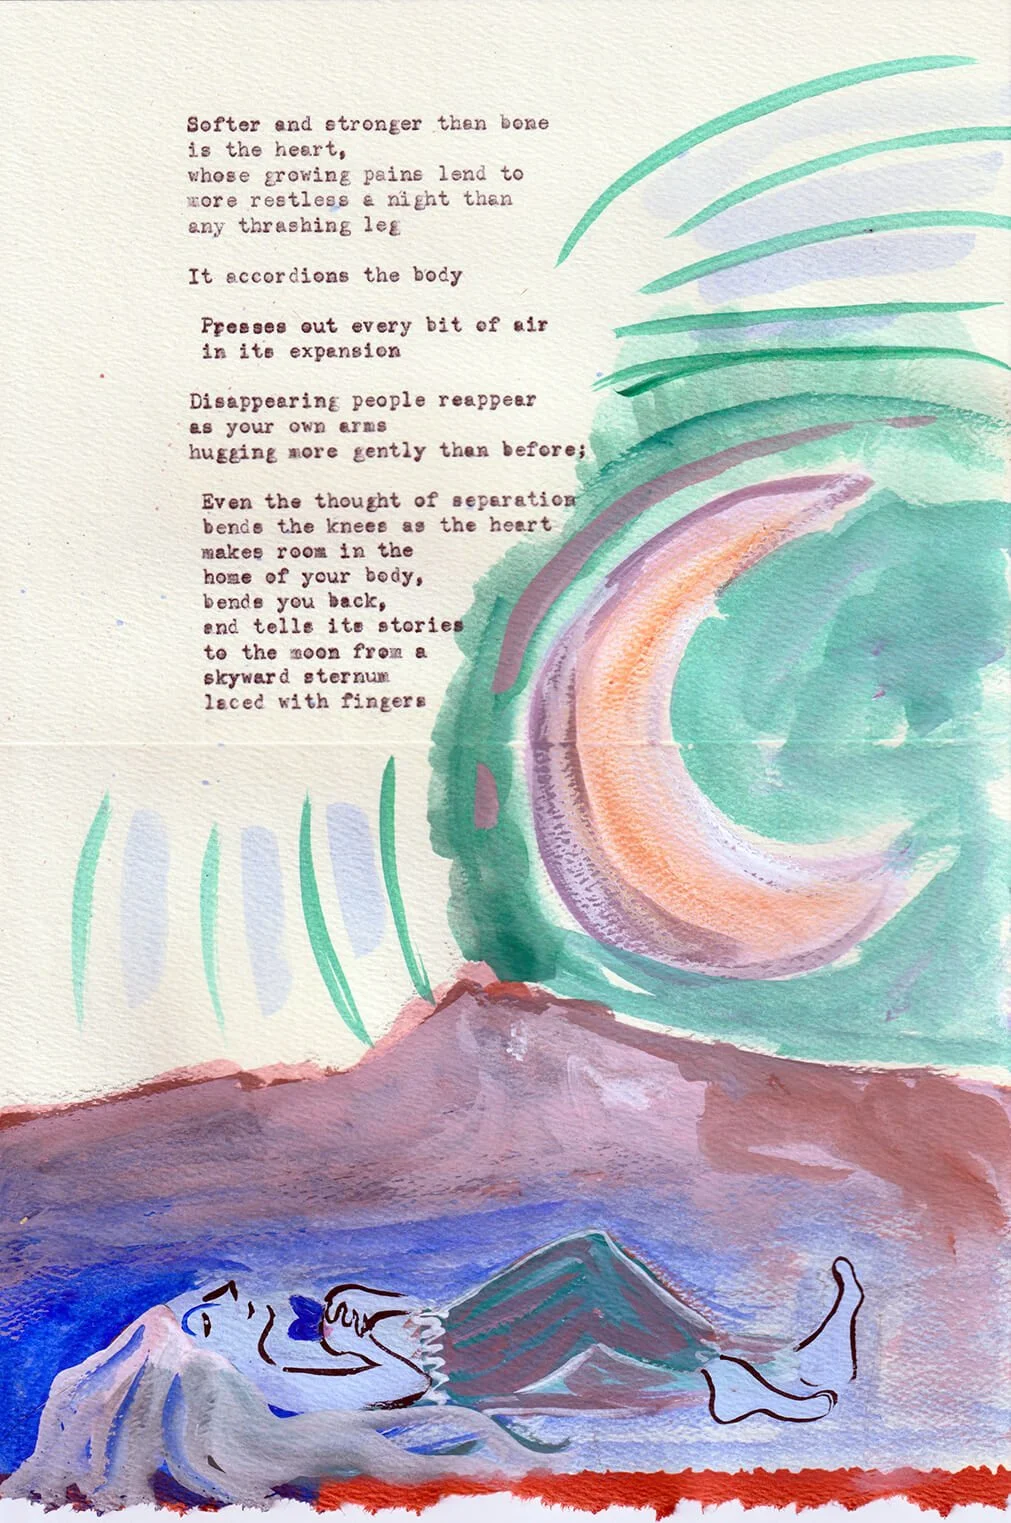 Softer and stronger than bone
is the heart,
whose growing pains lend to
more restless a night than
any thrashing leg
It accordions the body
Presses out every bit of air
in its expansion
Disappearing people reappear
as your own arms
hugging more gently than before;
Even the thought of separation
bends the knees as the heart
makes room in the
home of your body,
bends you back,
and tells its stories
to the moon from a
skyward sternum
laced with fingers